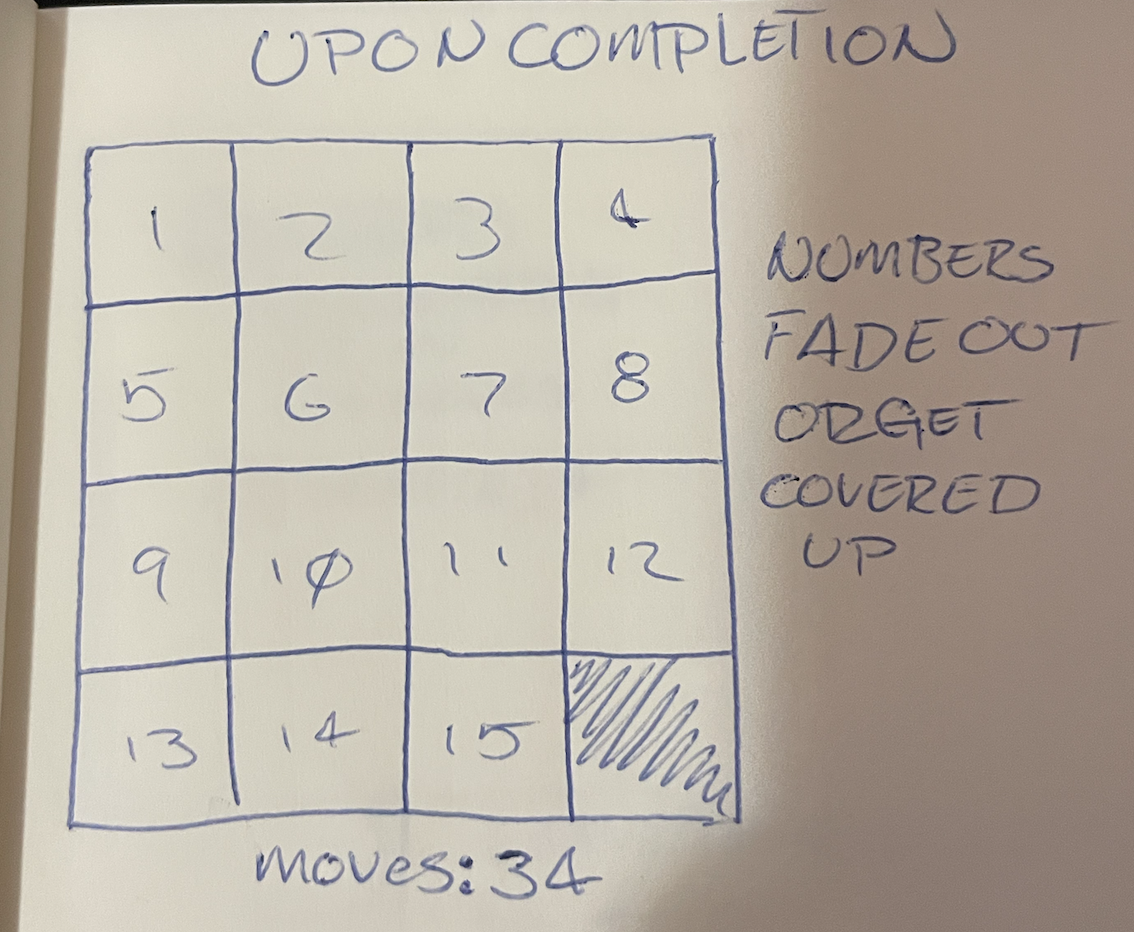 UPON COMPLETION
1 2 3 4
5 6 7 8
9 10 11 12
13 14 15
NUMBERS
FADE OUT
OR GET
COVERED
UP
moves: 34